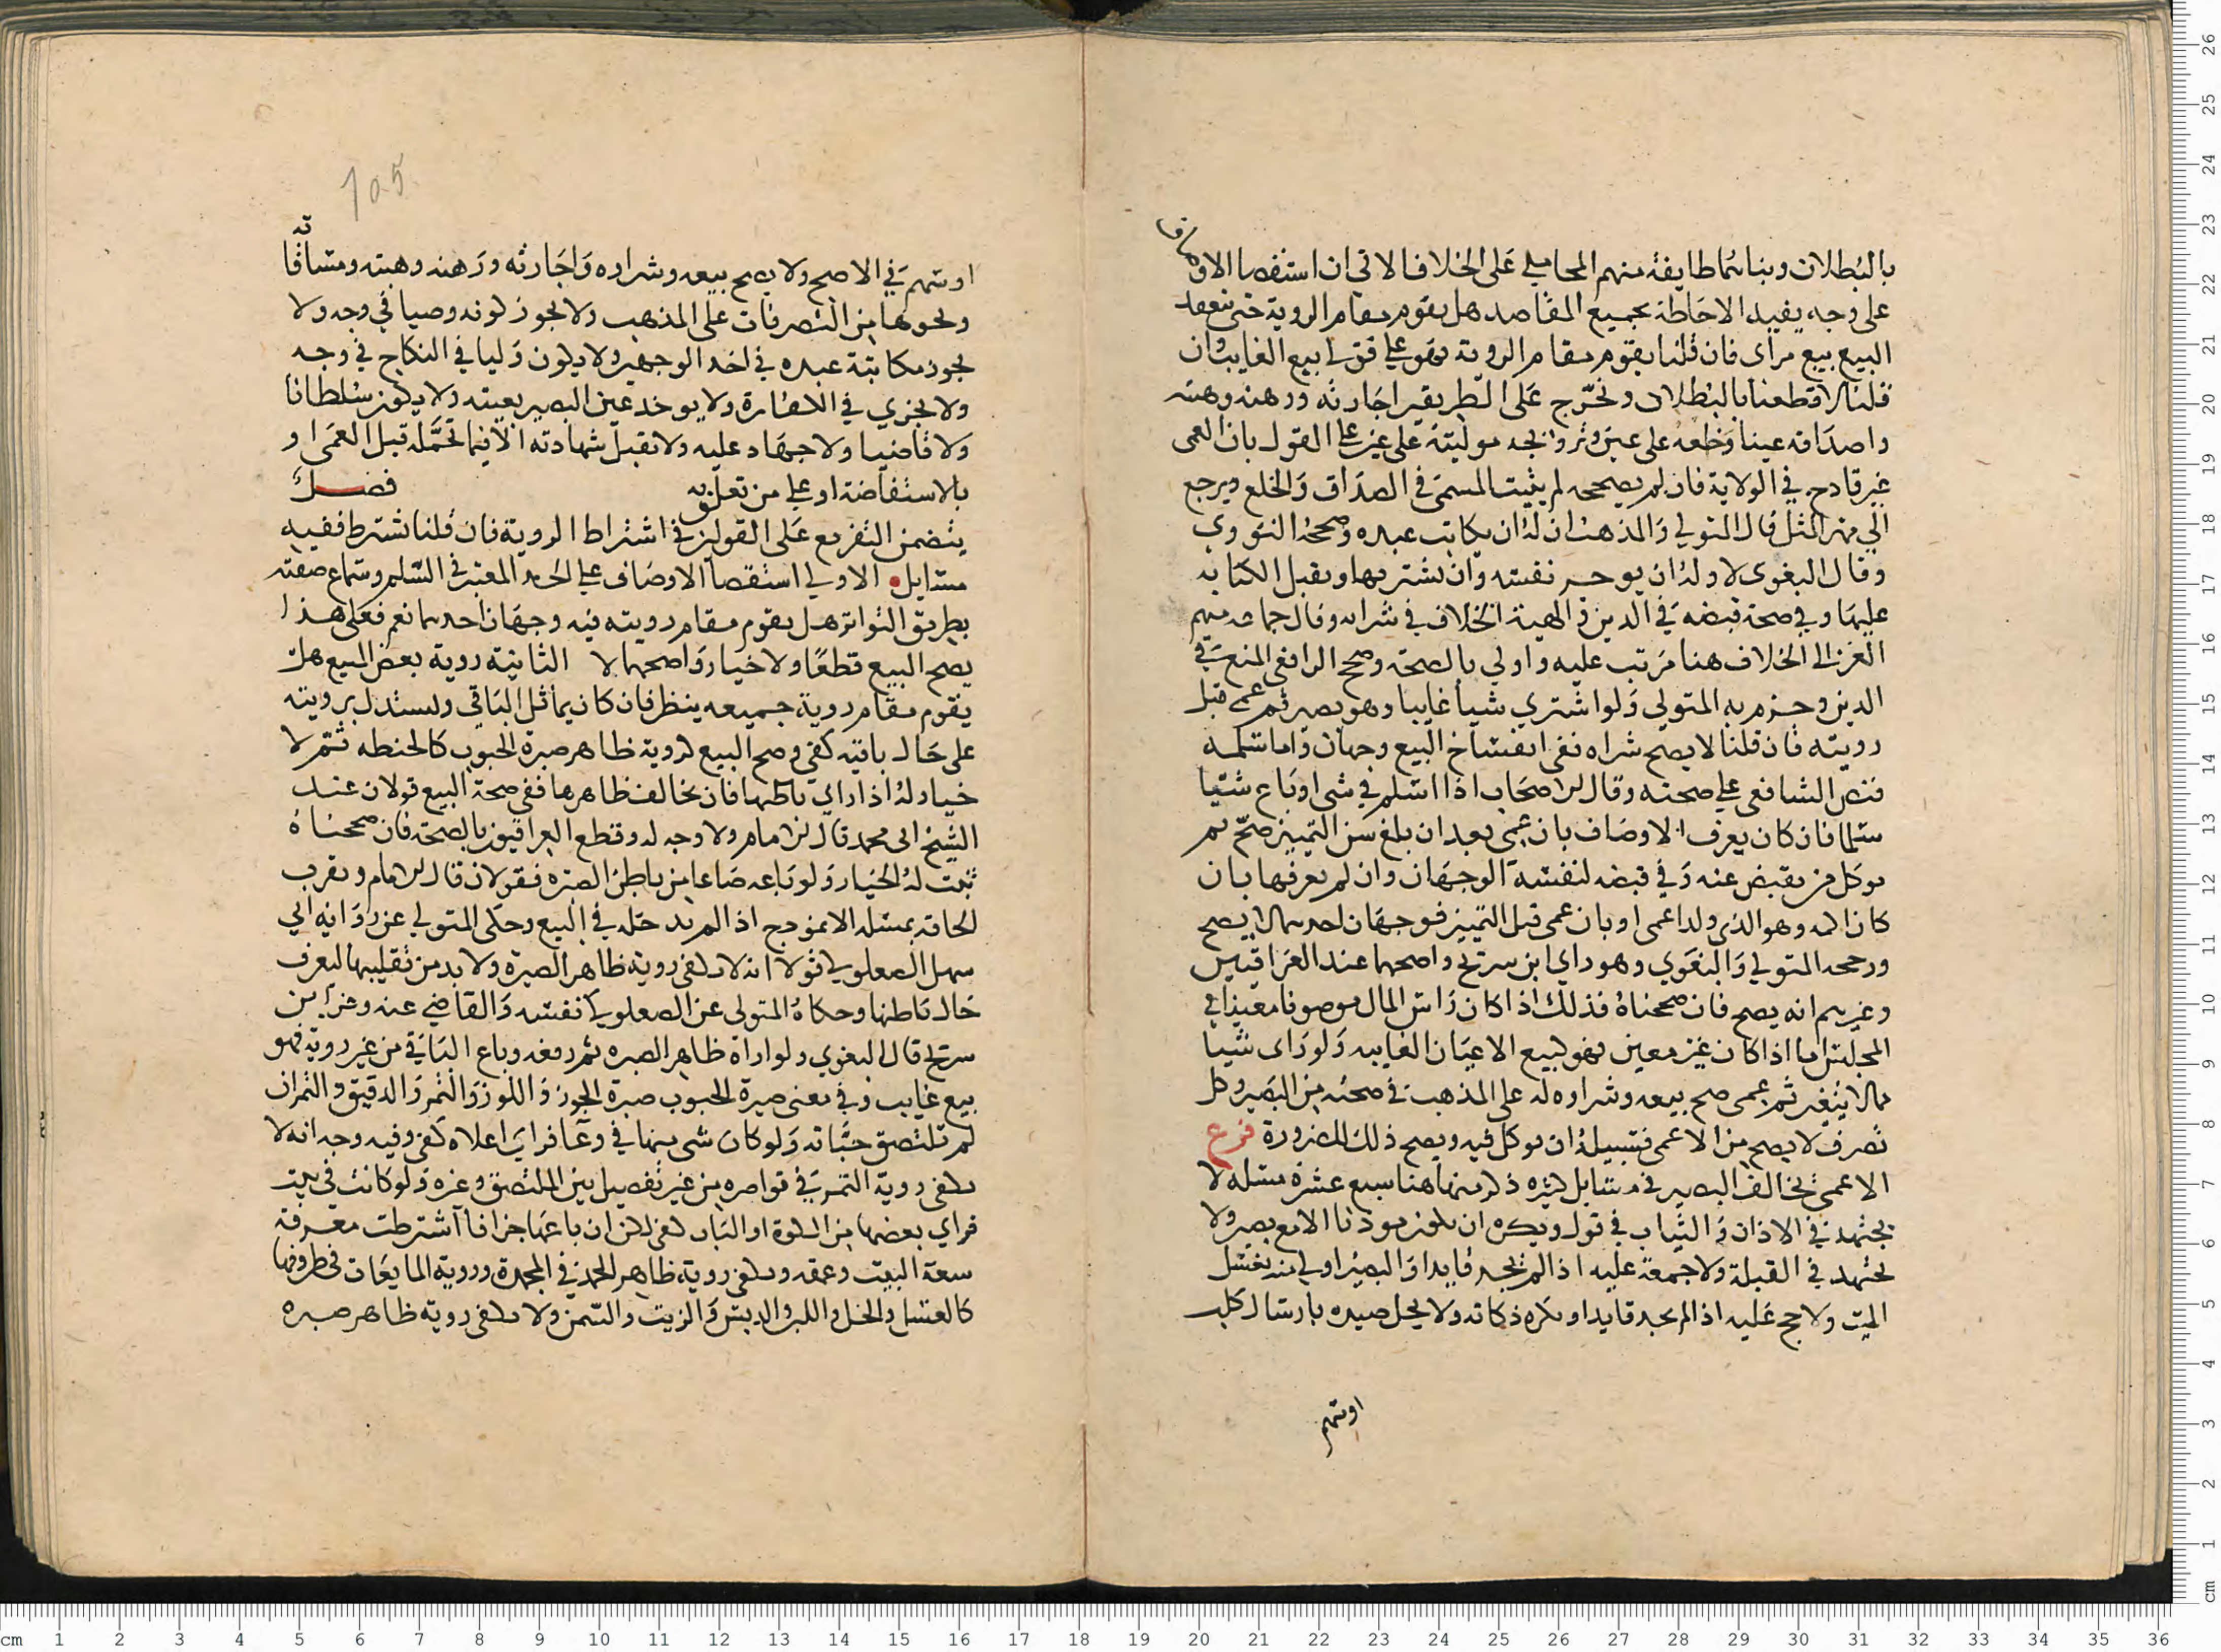 بالبطلان وبناهما طايفة منهم المحاملي على الخلاف الاتي ان استقصا الاوصاف
على وجه يفيد الاحاطة بجميع المقاصد هل يقوم مقام الروية حتى ينعقد
البيع بيع مراى فان قلنا يقوم مقام الروية فهو على قولي بيع الغايب وان
قلنا لا قطعنا بالبطلان وتخرج على الطريقين اجارته ورهنه وهبته
واصداقه عينا وخلعه على عين وتزويجه موليته على عين على القول بان العمى
غير قادح في الولاية فان لم يصححه لم يثبت المسمى في الصداق والخلع ويرجع
الى مهر المثل قال المتولي والمذهب ان له ان يكاتب عبده وصححه النووي
وقال البغوي لا وله ان يوجر نفسه وان يشتريها ويقبل الكتابة
عليها وفي صحة قبضه في الدين والهبة الخلاف في شرايه وقال جماعة منهم
الغزالي الخلاف هنا مرتب عليه واولي بالصحة وصحح الرافعي المنع في
الدين وجزم به المتولي ولو اشتري شيا غايبا وهو بصير ثم عمي قبل
رويته فان قلنا لا يصح شراه ففي انفساخ البيع وجهان واما سلمه
فنص الشافعي على صحته وقال الاصحاب اذا اسلم في شي او باع شيا
سلما فان كان يعرف الاوصاف بان عمي بعد ان بلغ سن التمييز صح ثم
يوكل من يقبض عنه وفي قبضه لنفسه الوجهان وان لم يعرفها بان
كان اكمه وهو الذي ولد اعمى او بان عمي قبل التمييز فوجهان احدهما لا يصح
ورجحه المتولي والبغوي وهو راي ابن سريج واصحهما عند العراقيين
وغيرهم انه يصح فان صححناه فذلك اذا كان راس المال موصوفا معينا في
المجلس اما اذا كان غير معين فهو كبيع الاعيان الغايبه ولو راى شيا
مما لا يتغير ثم عمى صح بيعه وشراوه له على المذهب في صحته من البصير وكل
تصرف لا يصح من الاعمى فسبيله ان يوكل فيه ويصح ذلك للضرورة فرع
الاعمى يخالف البصير في مسايل كثيره ذكر منها هنا سبع عشرة مسله لا
يجتهد في الاذان والثياب في قول ويكره ان يكون موذنا الا مع بصير ولا
يجتهد في القبلة ولا جمعة عليه اذا لم يجد قايدا والبصير اولي منه بغسل
الميت ولا حج عليه اذا لم يجد قايدا ويكره ذكاته ولا يحل صيده بارسال كلب
اوسهم
105
او سهم في الاصح ولا يصح بيعه وشراوه واجارته ورهنه وهبته ومساقاته
ونحوها من التصرفات على المذهب ولا يجوز كونه وصيا في وجه ولا
يجوز مكاتبة عبده في احد الوجهين ولا يكون وليا في النكاح في وجه
ولا يجزي في الكفارة ولا يوخذ عين البصير بعينه ولا يكون سلطانا
ولا قاضيا ولا جهاد عليه ولا تقبل شهادته الا فيما تحمله قبل العمى او
بالاستفاضة او على من تعلق به فصل
يتضمن التفريع على القولين في اشتراط الروية فان قلنا تشترط ففيه
مسايل الاولي استقصا الاوصاف على الحد المعتبر في السلم وسماع صفته
بطريق التواتر هل يقوم مقام رويته فيه وجهان احدهما نعم فعلى هذا
يصح البيع قطعا ولا خيار واصحهما لا الثانية روية بعض المبيع هل
يقوم مقام روية جميعه ينظر فان كان يماثل الباقي ويستدل برويته
على حال باقيه كفي وصح البيع كروية ظاهر صبرة الحبوب كالحنطه ثم لا
خيار له اذا راي باطنها فان تخالف ظاهرها ففي صحة البيع قولان عند
الشيخ ابي محمد قال الامام ولا وجه له وقطع العراقيون بالصحة فان صححناه
ثبت له الخيار ولو باعه صاعا من باطن الصبره فقولان قال الامام ويقرب
الحاقه بمسله الانموذج اذا لم يدخله في البيع وحكى المتولي عن رواية ابي
سهل الصعلوكي قولا انه لا يكفي روية ظاهر الصبرة ولا بد من تقليبها ليعرف
حال باطنها وحكاه المتولى عن الصعلوكي نفسه والقاضي عنه وعن ابن
سريج قال البغوي ولو اراه ظاهر الصبره ثم رفعه وباع الباقي من غير روية فهو
بيع غايب وفي معنى صبرة الحبوب صبرة الجوز واللوز والتمر والدقيق والتمر ان
لم تلتصق حباته ولو كان شي منها في وعا فراي اعلاه كفى وفيه وجه انه لا
يكفي روية التمر في قواصره من غير تفصيل بين الملتصق وغيره ولو كانت في بيت
فراي بعضها من الكوة او الباب كفى لكن ان باعها جزافا اشترطت معرفة
سعة البيت وعمقه ويكفي روية ظاهر الجمد في المجمدة وروية المايعات في ظروفها
كالعسل والخل واللبن والدبس والزيت والسمن ولا يكفي روية ظاهر صبره